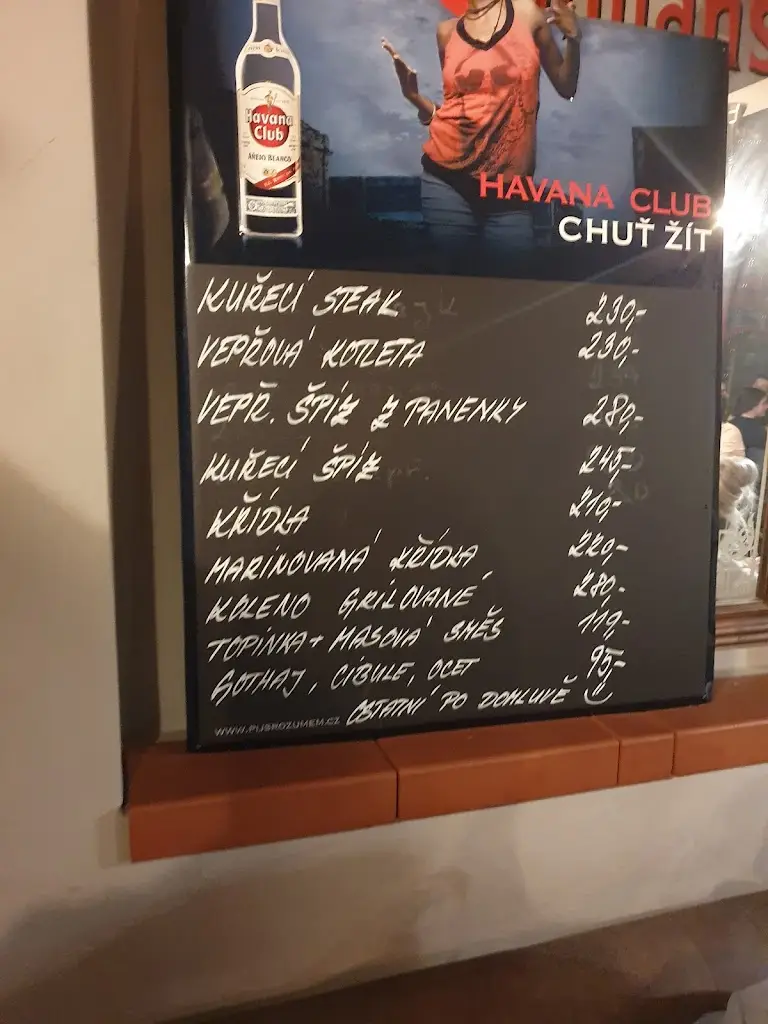 Havana
Club
AÑEJO BLANCO
HAVANA CLUB
CHUŤ ŽÍT
KUŘECÍ STEAK 230,-
VEPŘOVÁ KOTLETA 230,-
VEPŘ. ŠPÍZ Z PANENKY 280,-
KUŘECÍ ŠPÍZ 245,-
KŘÍDLA 210,-
MARINOVANÁ KŘÍDLA 220,-
KOLENO GRILOVANÉ 280.-
TOPINKA + MASOVÁ SMĚS 119,-
GOTHAJ, CIBULE, OCET 95,-
OSTATNÍ PO DOMLUVĚ
WWW.PIJSROZUMEM.CZ